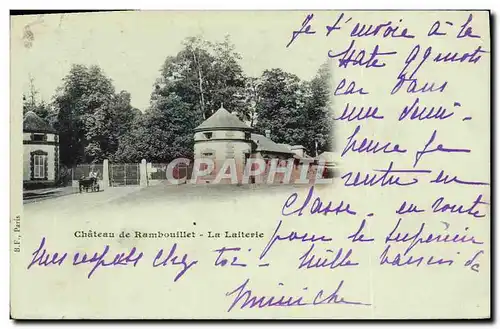 Je t'envoie à la
hate qq mots
car dans
une demi-
heure je
rentre en
classe. en route
pour le supérieur
Mes respects chez toi - mille baisers de
CPARAMA
Château de Rambouillet - La Laiterie
B. F., Paris